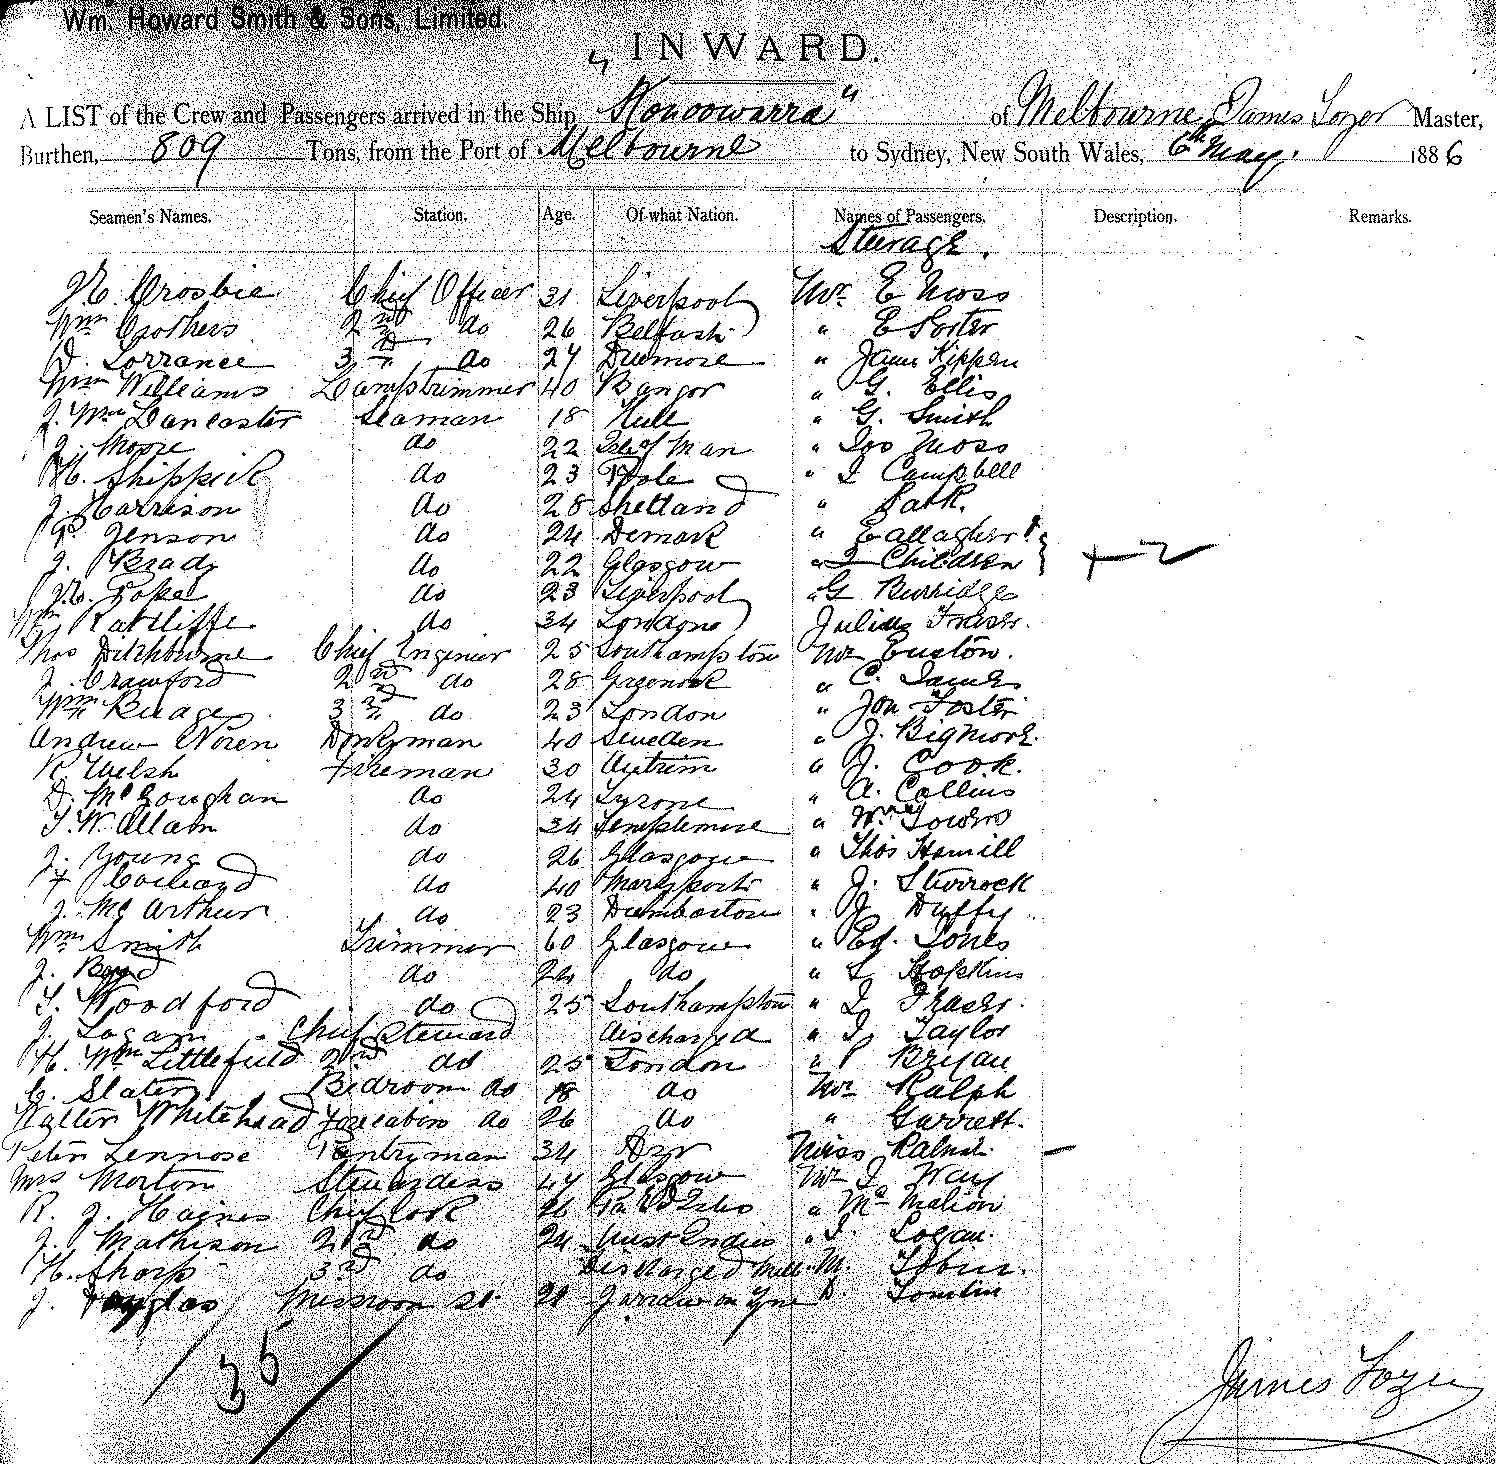 Wm. Howard Smith & Sons, Limited.
INWARD.
A LIST of the Crew and Passengers arrived in the Ship "Konoowarra" of Melbourne James Lozer Master,
Burthen, 809 Tons, from the Port of Melbourne to Sydney, New South Wales, 6th May. 1886
Seamen's Names. Station. Age. Of what Nation. Names of Passengers. Description. Remarks.
Steerage.
Crosbie Chief Officer 31 Liverpool Mr. E Moss
Wm Crothers 2nd do 26 Belfast " E Porter
D. Lorrance 3rd do 27 " James Kippen
Wm Williams Lamptrimmer 40 Bangor " G. Ellis
J. Wm Lancaster Seaman 18 Hull " G. Smith
J. Moore do 22 Isle of Man " Moss
H. Shippick do 23 Poole " J Campbell
J. Harrison do 28 Shetland " Park.
P. Jenson do 24 Demark " Gallagher }
J. Brady do 22 Glasgow " 2 Children } + 2
Pope do 23 Liverpool " G Burridge
Wm Ratcliffe do 34 London Julius Fraser.
Thos Ditchburne Chief Enginier 25 Southampton Mr Euston.
J. Crawford 2nd do 28 Greenock " C. James
Wm 3rd do 23 London " Jon Foster
Andrew Noren Donkyman 40 Sweden " J. Bigmore.
R Welsh Fireman 30 Antrim " J. Cook.
D. McLoughan do 24 Tyrone " A. Collins
T. W. Allam do 34 Templemore " Wm Towers
J. Young do 26 Glasgow " Thos Hamill
do 40 Maryport " J. Sturrock
J. McArthur do 23 Dumbarton " J Duffy
Wm Smith Trimmer 60 Glasgow " Ed. Jones
J. Boyd do 24 do " Hopkins
T. Woodford do 25 Southampton " J. Fraser.
J. Logan Chief Steward discharged " J. Taylor
H. Wm Littlefield 2nd do 25 London " P Bryan
C. Slater Bedroom do 18 do Mr Ralph
Walter Whitehead Forecabin do 26 do " Garrett.
Peter Lennose Pantryman 34 Ayr Miss
Mrs Morton Stewardess 47 Glasgow Mr J Way
R. J. Haines Chief Cook " McMahon
J. Mathison 2nd do 24 West Indies " J. Logan.
H. Sharp 3rd do Discharged M. Tobin.
J. Douglas Messroom St. 21 Jarrow on Tyne D. Tomlin
35
James Lozer